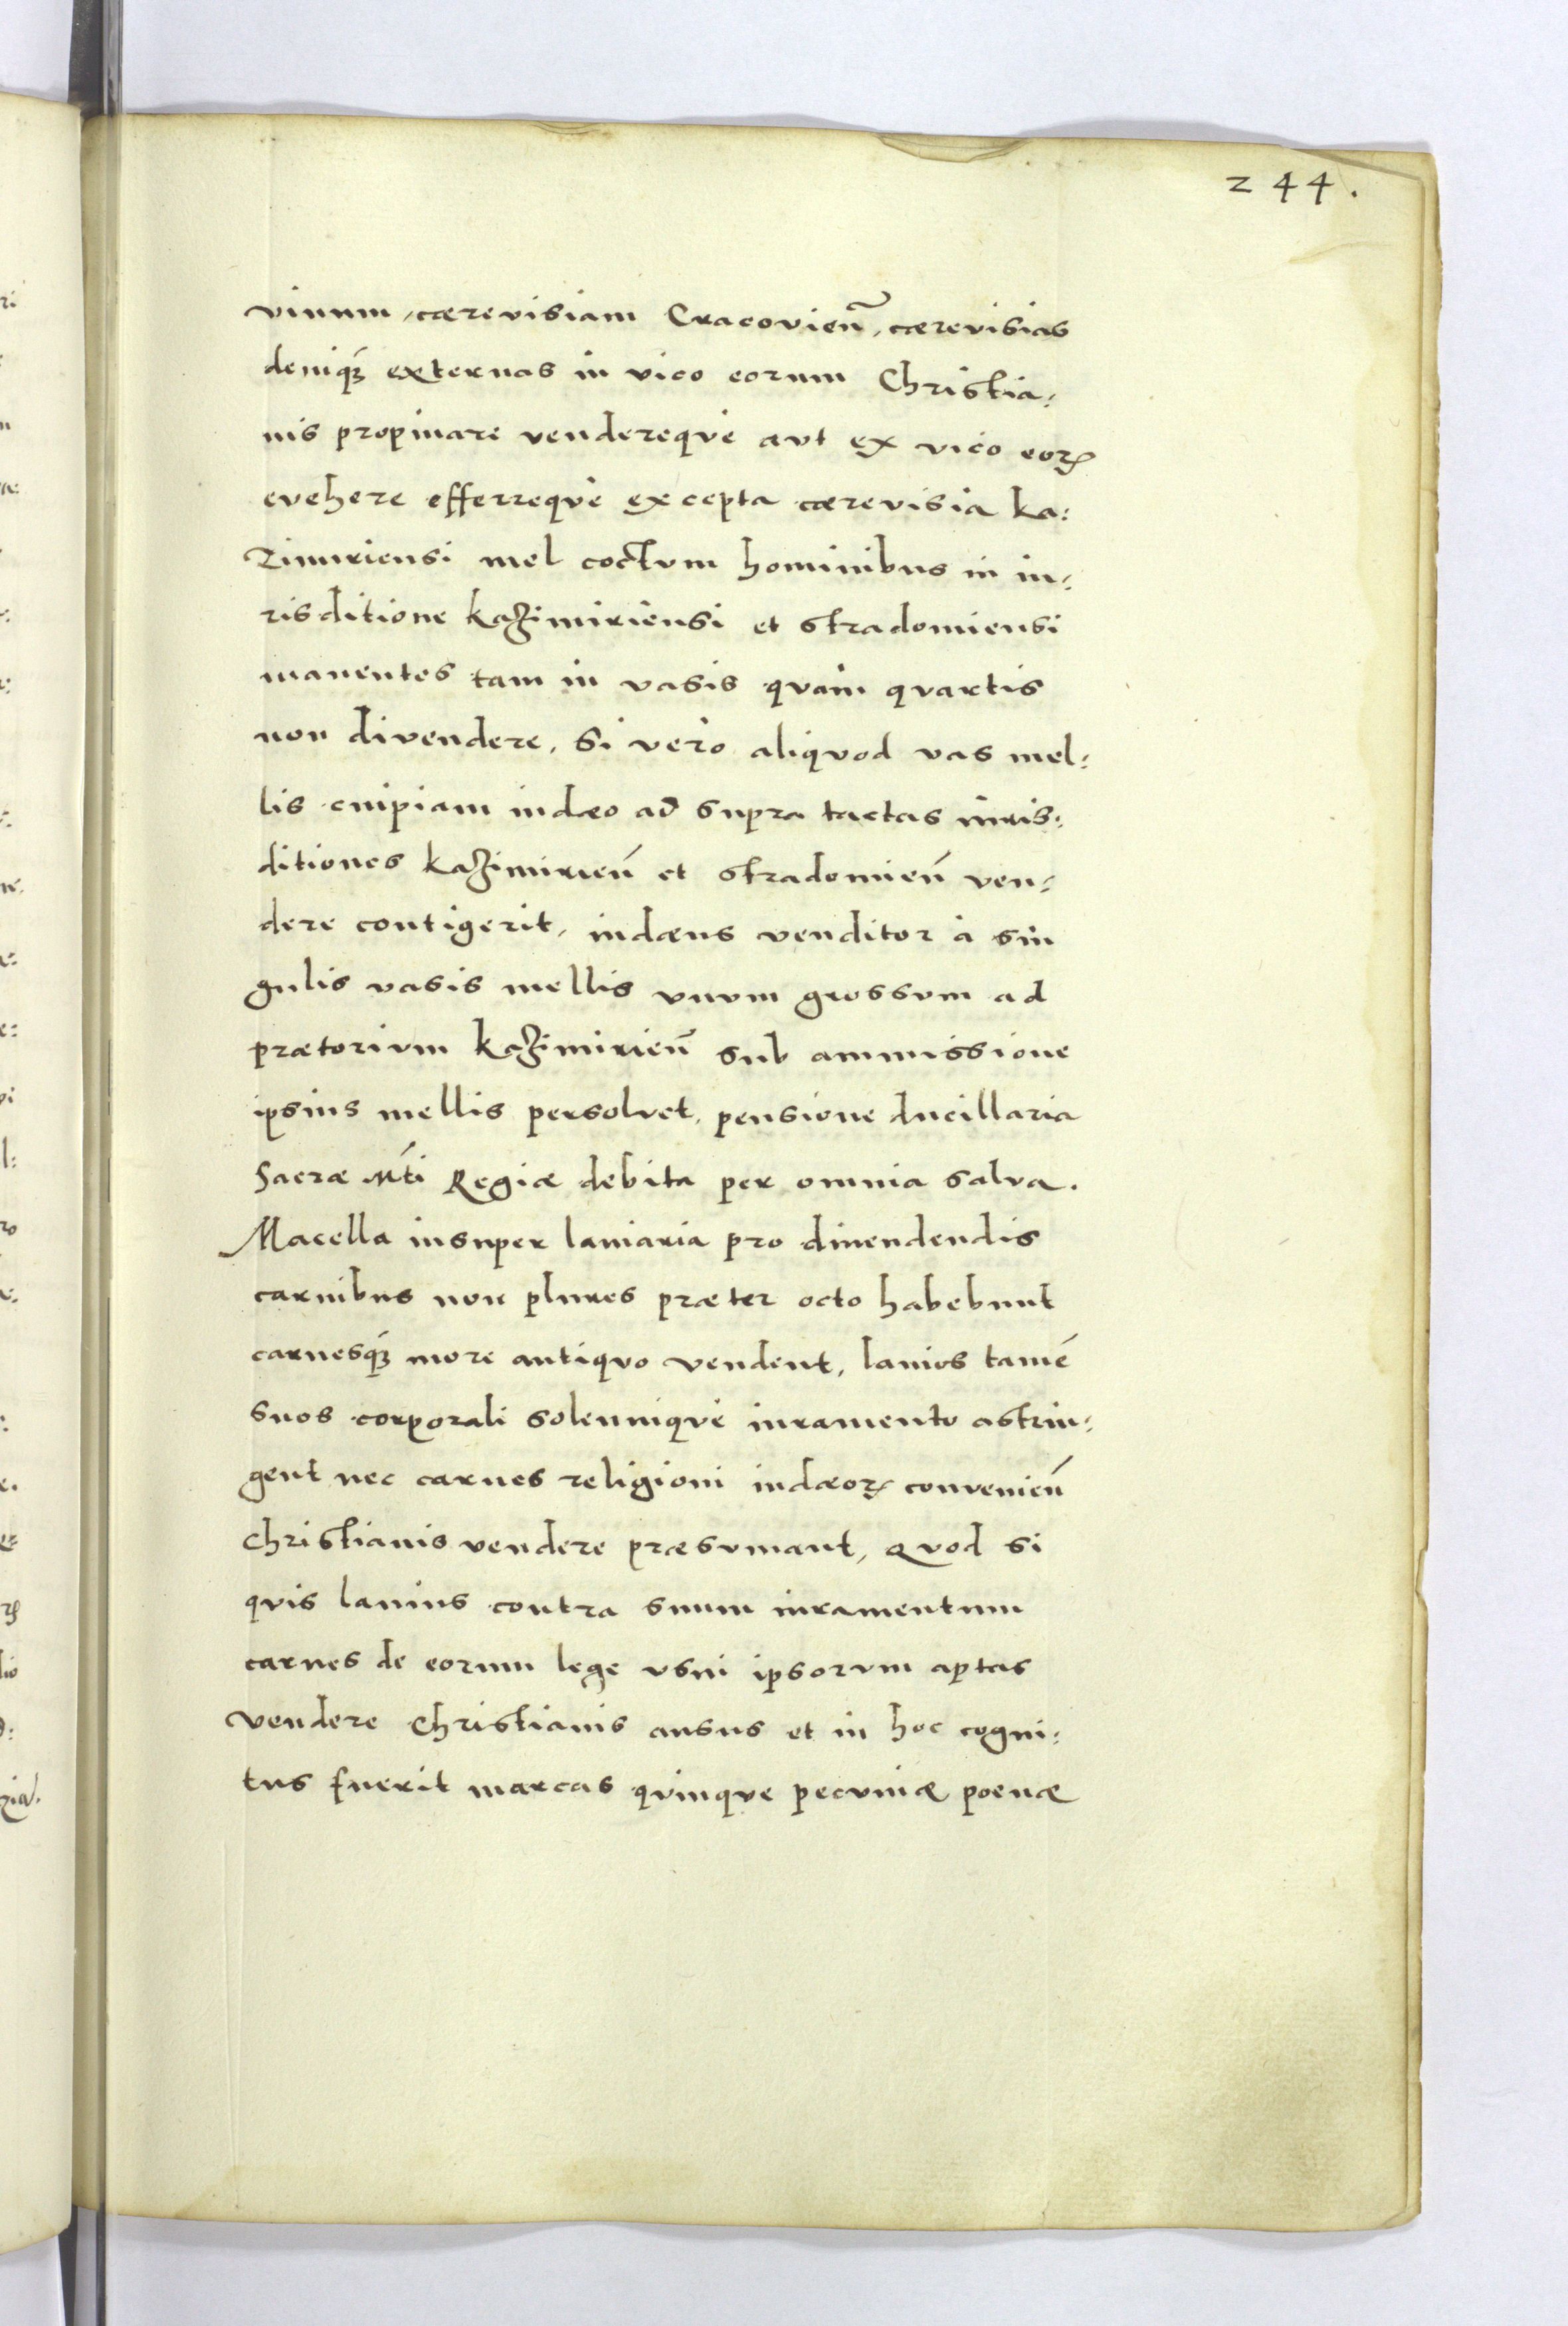 244.
vinum, cærevisiam Cracovien̄, cærevisias
deniq́ꝫ externas in vico eorum Christia:
nis propinare vendereqúe aut ex vico eorꝝ
evehere efferreqúe excepta cærevisia ka:
zimiriensi mel coctum hominibus in iu:
risditione kazimiriensi et stradomiensi
manentes tam in vasis quàm quartis
non divendere, Si verò aliquod vas mel:
lis cuipiam iudæo ad supra tactas iuris:
ditiones kazimirien̄ et stradomien̄ ven:
dere contigerit, iudæus venditor à sin
gulis vasis mellis vnum grossum ad
prætorium kazimirien̄ sub ammissione
ipsius mellis persolvet, pensione ducillaria
Sacræ Mti Regiæ debita per omnia salva.
Macella insuper laniaria pro divendendis
carnibus non plures præter octo habebunt
carnesq́ꝫ more antiquo vendent, lanios tamē
suos corporali solenniqúe iuramento astrin:
gent nec carnes religioni iudæorꝝ convenien̄
Christianis vendere præsumant, Quod si
quis lanius contra suum iuramentum
carnes de eorum lege vsui ipsorum aptas
vendere Christianis ausus et in hoc cogni:
tus fuerit marcas quinque pecuniæ poenæ